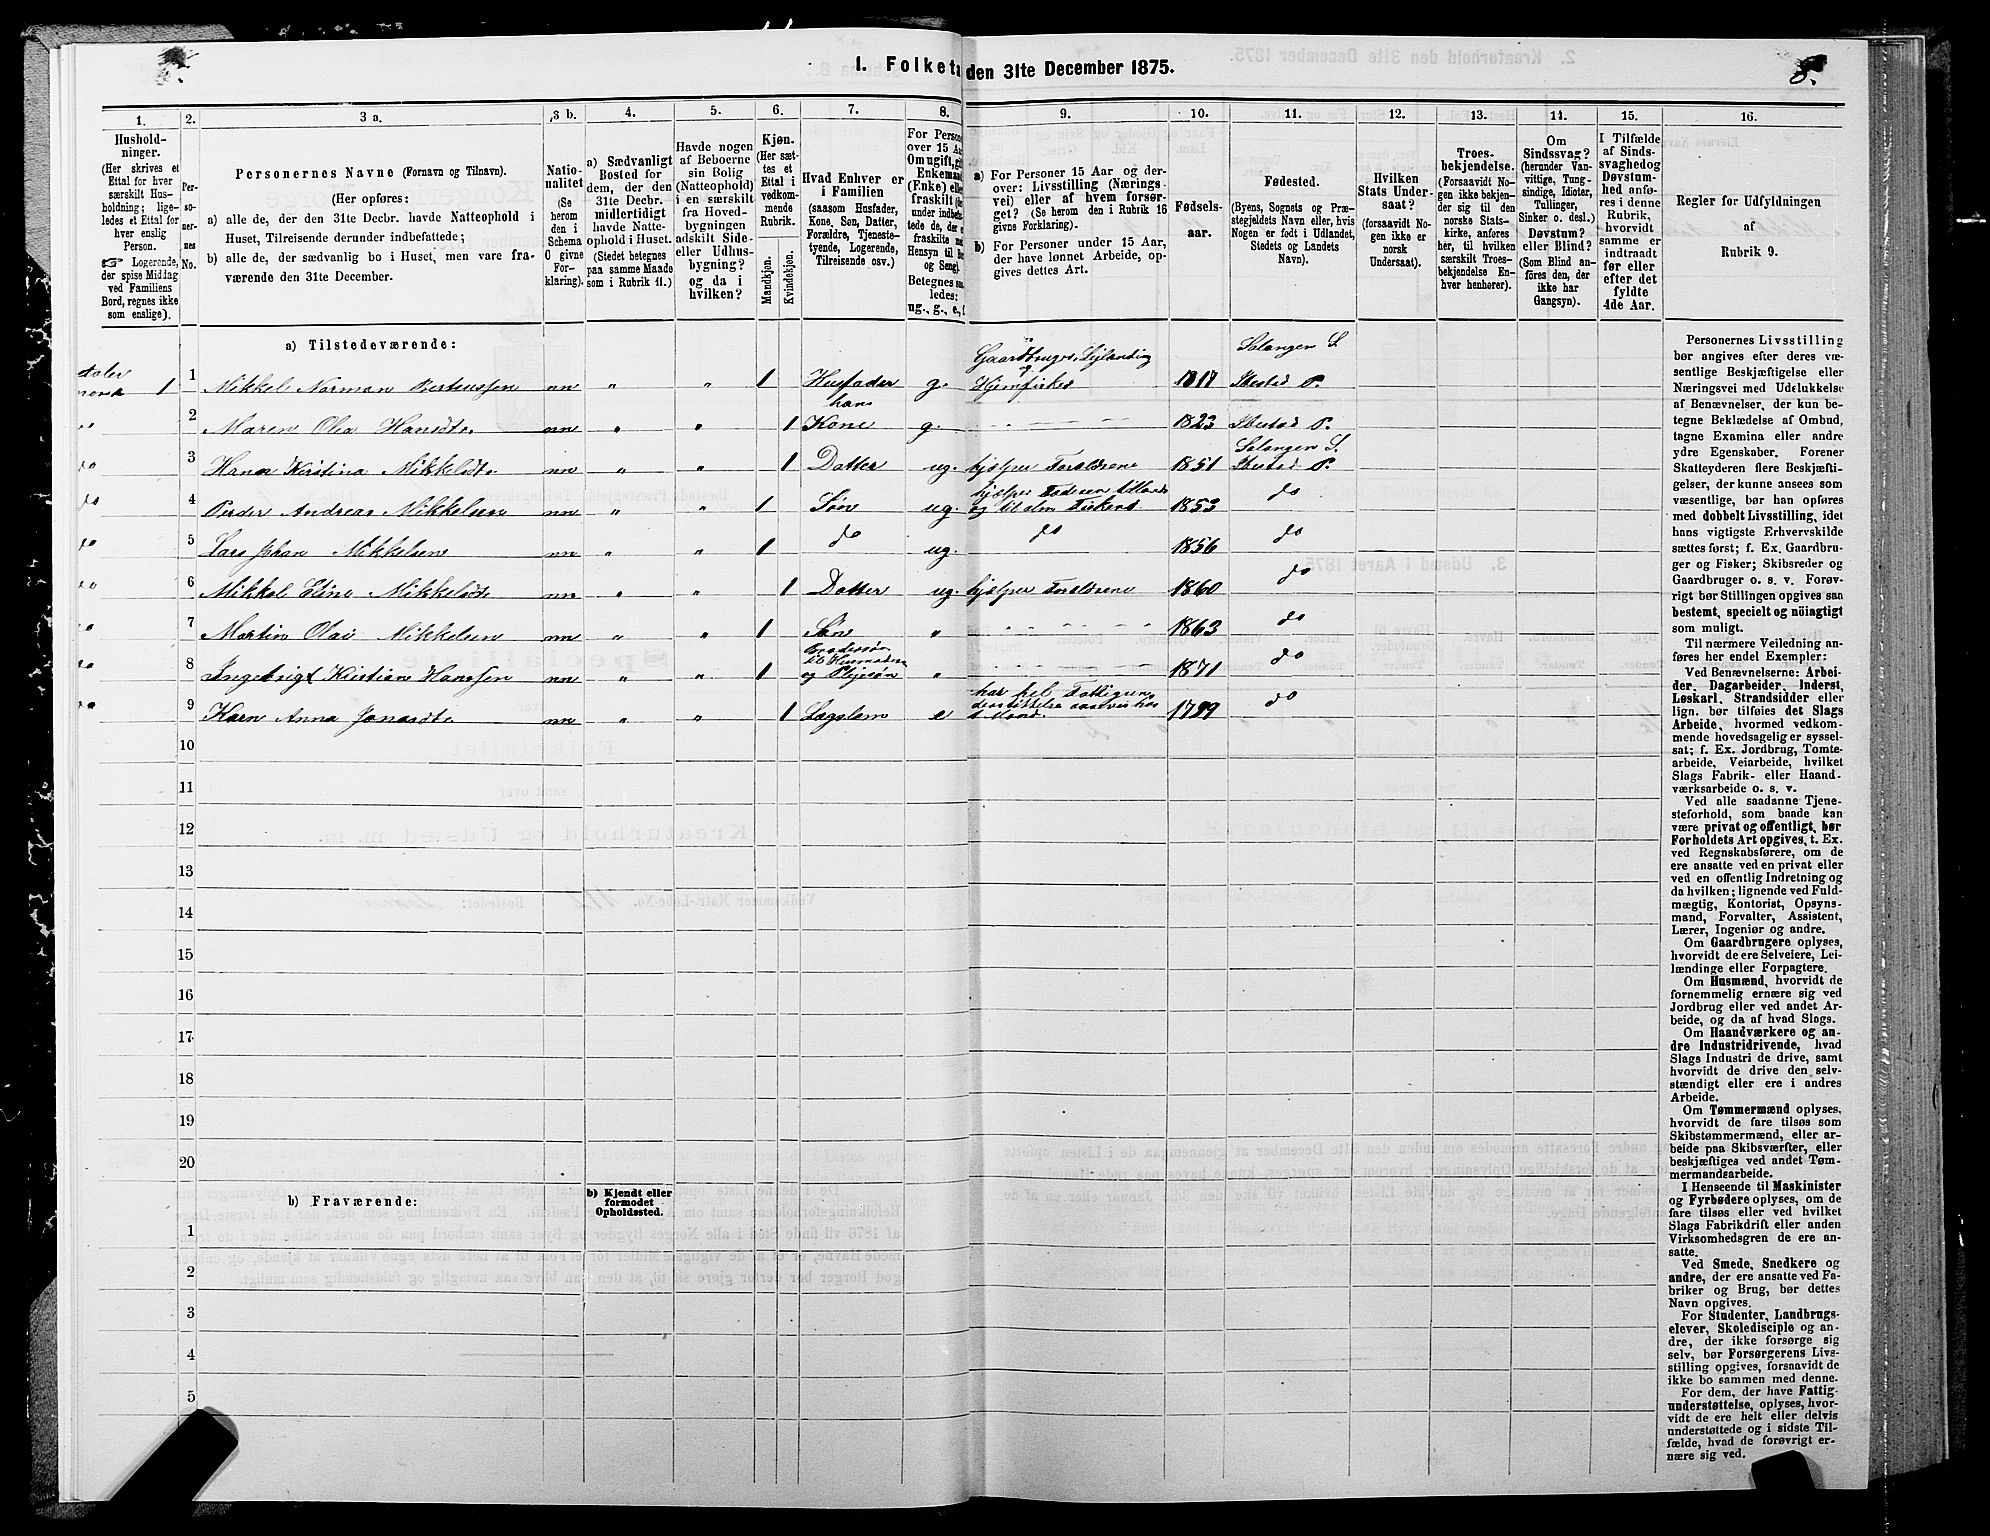 I. Folketæ den 31te December 1875.
8.
1. 2. 3 a. 3 b. 4. 5. 6. 7. 8. 9. 10. 11. 12. 13. 14. 15. 16.
Hushold-
ninger.
(Her skrives et
Ettal for hver
særskilt Hus-
holdning; lige-
ledes et Ettal for
hver enslig
Person.
☞ Logerende,
der spise Middag
ved Familiens
Bord, regnes ikke
som enslige).
Per-
so-
ner-
nes
No.
Personernes Navne (Fornavn og Tilnavn).
(Her opføres:
a) alle de, der den 31te Decbr. havde Natteophold i
Huset, Tilreisende derunder indbefattede;
b) alle de, der sædvanlig bo i Huset, men vare fra-
værende den 31te December.
Natio-
nalitet
(Se
herom
den i
Schema
C givne
For-
klaring).
a) Sædvanligt
Bosted for
dem, der den
31te Decbr.
midlertidigt
havde Natte-
ophold i Huset.
(Stedet betegnes
paa samme Maade
som i Rubrik 11.)
Havde nogen
af Beboerne
sin Bolig
(Natteophold)
i en særskilt
fra Hoved-
bygningen
adskilt Side-
eller Udhus-
bygning?
og da i
hvilken?
Kjøn.
(Her sæt-
tes et
Ettal i
vedkom-
mende
Rubrik.
Mandkjøn.
Kvindekjøn.
Hvad Enhver er
i Familien
(saasom Husfader,
Kone, Søn, Datter,
Forældre, Tjeneste-
tyende, Logerende,
Tilreisende osv.)
For Person
over 15 Aa
Om ugift, gi
Enkemand
(Enke) elle
fraskilt
under indbe
tede de, der
fraskilte
Hensyn til Bo
og Seng).
Betegnes saa
ledes:
ug., g., e.,
a) For Personer 15 Aar og der-
over: Livsstilling (Nærings-
vei) eller af hvem forsør-
get? (Se herom den i Rubrik 16
givne Forklaring).
b) For Personer under 15 Aar,
der have lønnet Arbeide, op-
gives dettes Art.
Fødsels-
aar.
Fødested.
(Byens, Sognets og Præ-
stegjeldets Navn eller, hvis
Nogen er født i Udlandet,
Stedets og Landets
Navn).
Hvilken
Stats Under-
saat?
(forsaavidt No-
gen ikke er
norsk
Undersaat).
Troes-
bekjendelse.
(Forsaavidt No-
gen ikke bekjen-
der sig til den
norske Stats-
kirke, anføres
her, til hvilken
særskilt Troes-
bekjendelse En-
hver henhører).
Om
Sindssvag?
(herunder Van-
vittige, Tung-
sindige, Idioter,
Tullinger,
Sinker o. desl.)
Døvstum?
eller Blind?
(Som Blind an-
føres den, der
ikke har
Gangsyn).
I Tilfælde
af Sinds-
svaghed og
Døvstum-
hed anfø-
res i denne
Rubrik,
hvorvidt
samme er
indtraadt
før eller
efter det
fyldte
4de Aar.
Regler for Udfyldningen
af
Rubrik 9.
a) Tilstedeværende:
taler norsk 1 1 Mikkel Norman Berteussen nn " " 1 Husfader g. Gaardbruger, Leilænding og Hjemfisker 1817 Salangen S. Ibestad P.
do 2 Maren Olea Hansdt. nn " " 1 hans Kone g. 1823 Ibestad P.
do 3 Hana Kirstina Mikkelsdt. nn " " 1 Datter ug. hjælper Forældrene 1851 Salangen S. Ibestad P.
do 4 Peder Andreas Mikkelsen nn " " 1 Søn ug. hjælper Faderen 1853 do
do 5 Lars Johan Mikkelsen nn " " 1 do ug. do 1856 do
do 6 Mikkel Eline Mikkelsdt. nn " " 1 Datter ug. hjælper Forældrene 1860 do
do 7 Martin Olai Mikkelsen nn " " 1 Søn " 1863 do
do 8 Ingebrigt Kristian Hanssen nn " " 1 Brodersøn til Husmoderen og Pleiesøn " 1871 do
do 9 Karn Anna Jonasdt. nn " " 1 Lægslem e har hel Fattigun-
derstøttelse 1799 do
10
11
12
13
14
15
16
17
18
19
20
b) Fraværende:
b) Kjendt eller
formodet
Opholdssted.
1
2
3
4
5
Personernes Livsstilling
bør angives efter deres væ-
sentlige Beskjæftigelse eller
Næringsvei med Udelukkelse
af Benævnelser, der kun be-
tegne Beklædelse af Ombud,
tagne Examina eller andre
ydre Egenskaber. Forener
Skatteyderen flere Beskjæfti-
gelser, der kunne ansees som
væsentlige, bør han opføres
med dobbelt Livsstilling, idet
hans vigtigste Erhvervskilde
sættes først; f. Ex. Gaardbru-
ger og Fisker; Skibsreder og
Gaardbruger o. s. v. Forøv-
rigt bør Stillingen opgives saa
bestemt, specielt og nöiagtigt
som muligt.
Til nærmere Veiledning an-
føres her endel Exempler:
Ved Benævnelserne: Arbei-
der, Dagarbeider, Inderst,
Løskarl, Strandsidder eller
lign. bør tilføies det Slags
Arbeide, hvormed vedkom-
mende hovedsagelig er syssel-
sat; f. Ex. Jordbrug, Tomte-
arbeide, Veiarbeide, hvilket
Slags Fabrik- eller Haand-
værksarbeide o. s. v.
Ved alle saadanne Tjene-
steforhold, som baade kan
være privat og offentligt, bør
Forholdets Art opgives, t. Ex.
ved Regnskabsførere, om de
ere ansatte ved en privat eller
ved en offentlig Indretning og
da hvilken; lignende ved Fuld-
mægtig, Kontorist, Opsyns-
mand, Forvalter, Assistent,
Lærer, Ingeniør og andre.
Om Gaardbrugere oplyses,
hvorvidt de ere Selveiere, Lei-
lændinge eller Forpagtere.
Om Husmænd, hvorvidt de
fornemmelig ernære sig ved
Jordbrug eller ved andet Ar-
beide, og da af hvad Slags.
Om Haandværkere og an-
dre Industridrivende, hvad
Slags Industri de drive, samt
hvorvidt de drive den selv-
stændigt eller ere i andres
Arbeide.
Om Tømmermænd oplyses,
hvorvidt de fare tilsøs som
Skibstømmermænd, eller ar-
beide paa Skibsværfter, eller
beskjæftiges ved andet Tøm-
mermandsarbeide.
I Henseende til Maskinister
og Fyrbødere oplyses, om de
fare tilsøs eller ved hvilket
Slags Fabrikdrift eller anden
Virksomhedsgren de ere an-
satte.
Ved Smede, Snedkere og
andre, der ere ansatte ved Fa-
briker og Brug, bør dettes
Navn opgives.
For Studenter, Landbrugs-
elever, Skoledisciple og an-
dre, der ikke forsørge sig
selv, bør Forsørgerens Livs-
stilling opgives, forsaavidt de
ikke bo sammen med denne.
For dem, der have Fattig-
understøttelse, oplyses, hvor-
vidt de ere helt eller delvis
understøttede og i sidste Til-
fælde, hvad de forøvrigt er-
nære sig ved.